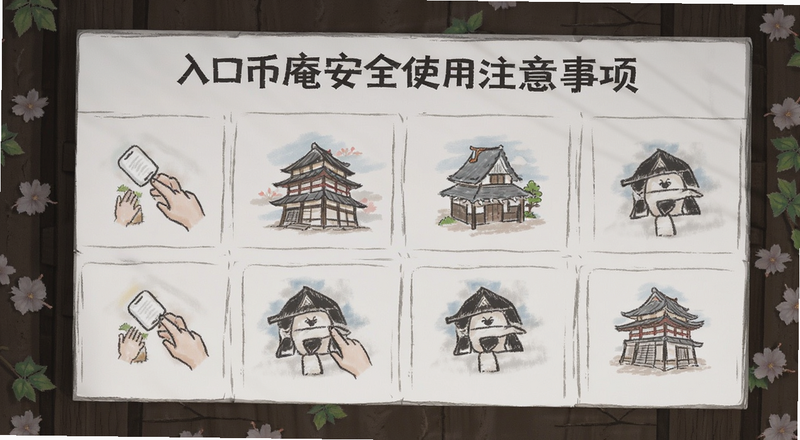 入口币庵安全使用注意事项